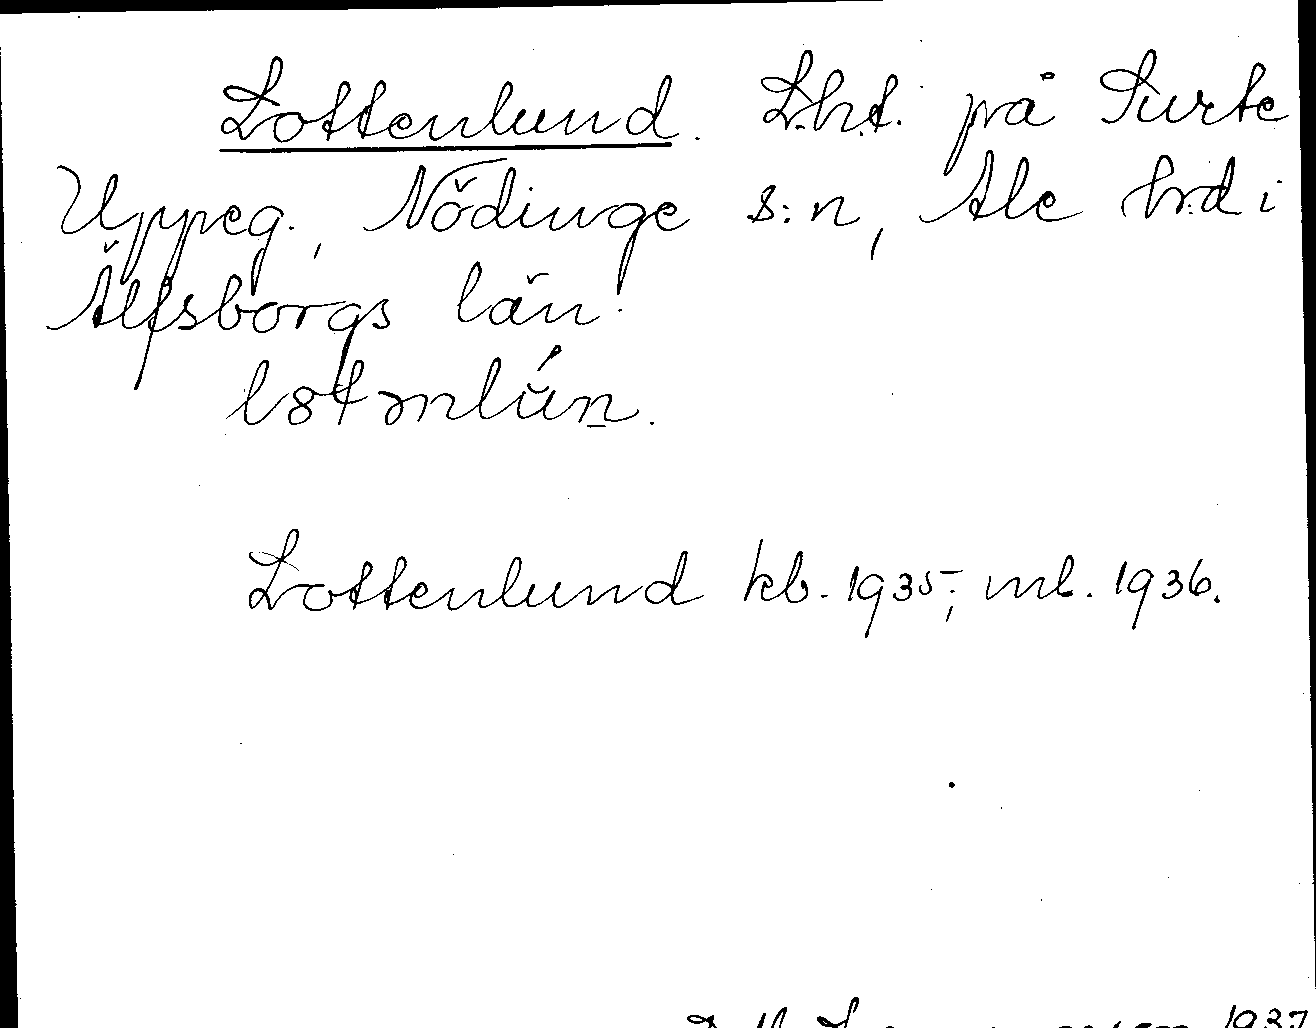 Lottenlund. Lht. på Surte
Uppeg., Nödinge s:n, Ale hrd i
Älfsborgs län.
Lottenlund kb. 1935; ml. 1936.
1937